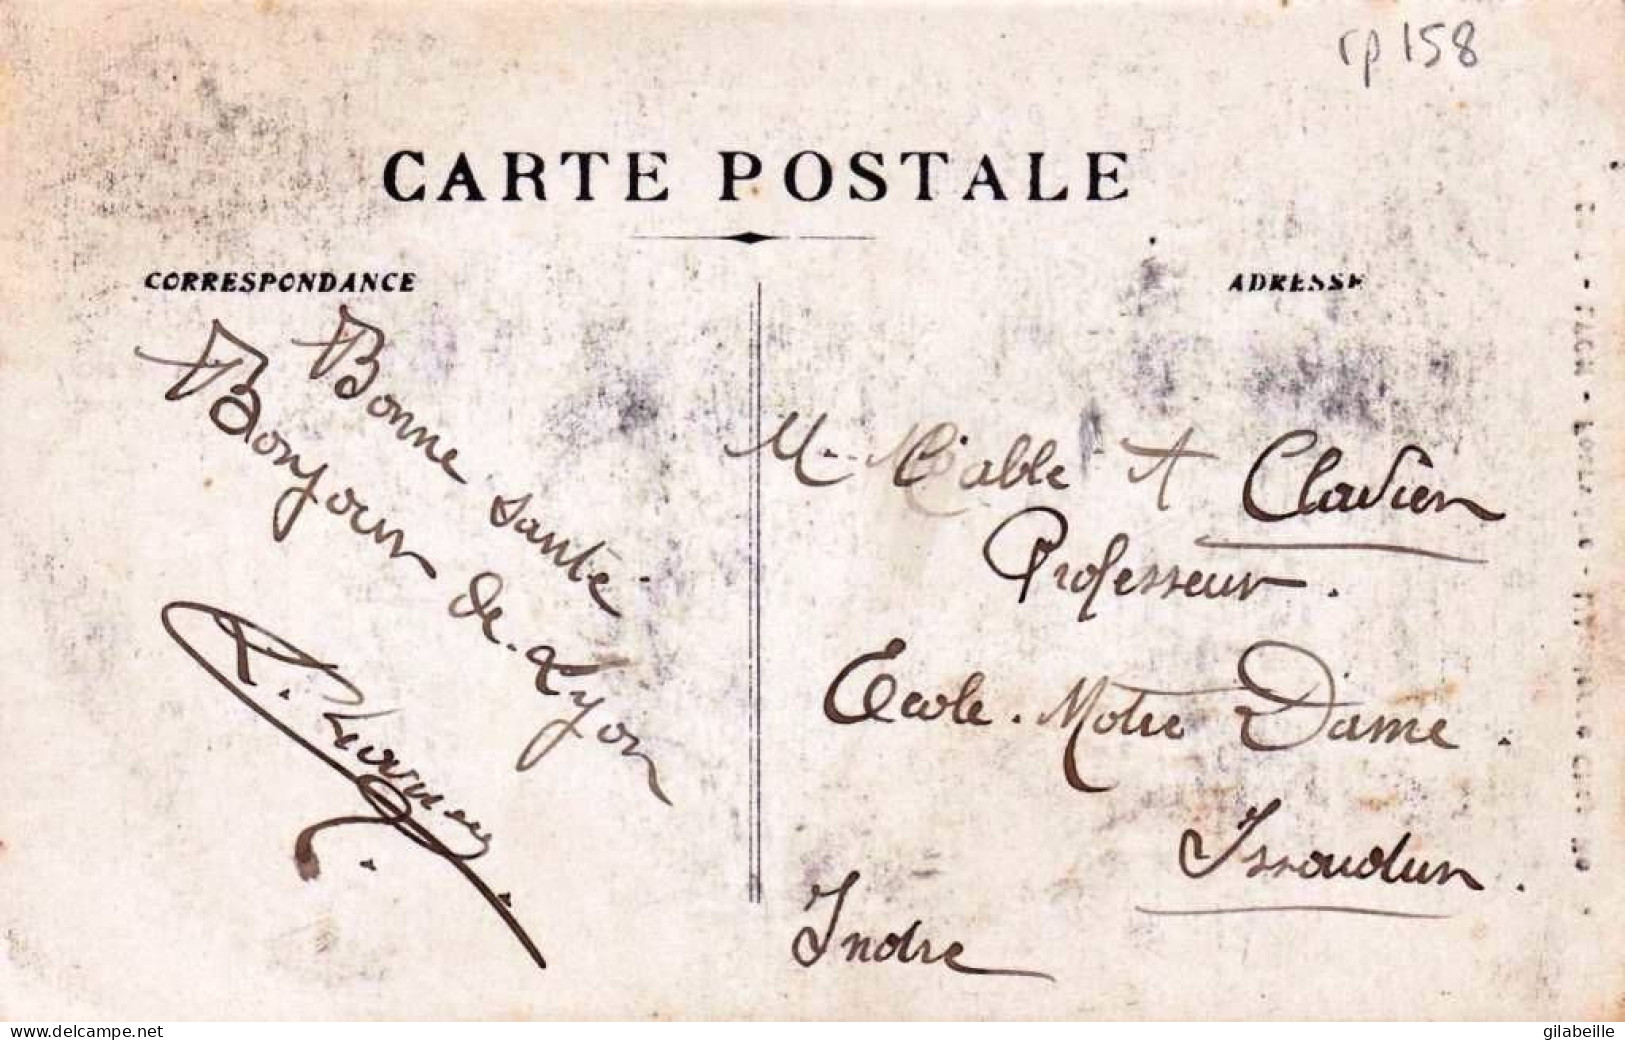 rp 158
CARTE POSTALE
CORRESPONDANCE
ADRESSE
Bonne santé
Bonjour de Lyon
M. l'abbé A Clavien
Professeur.
Ecole. Notre Dame.
Issoudun.
Indre
www.delcampe.net
gilabeille